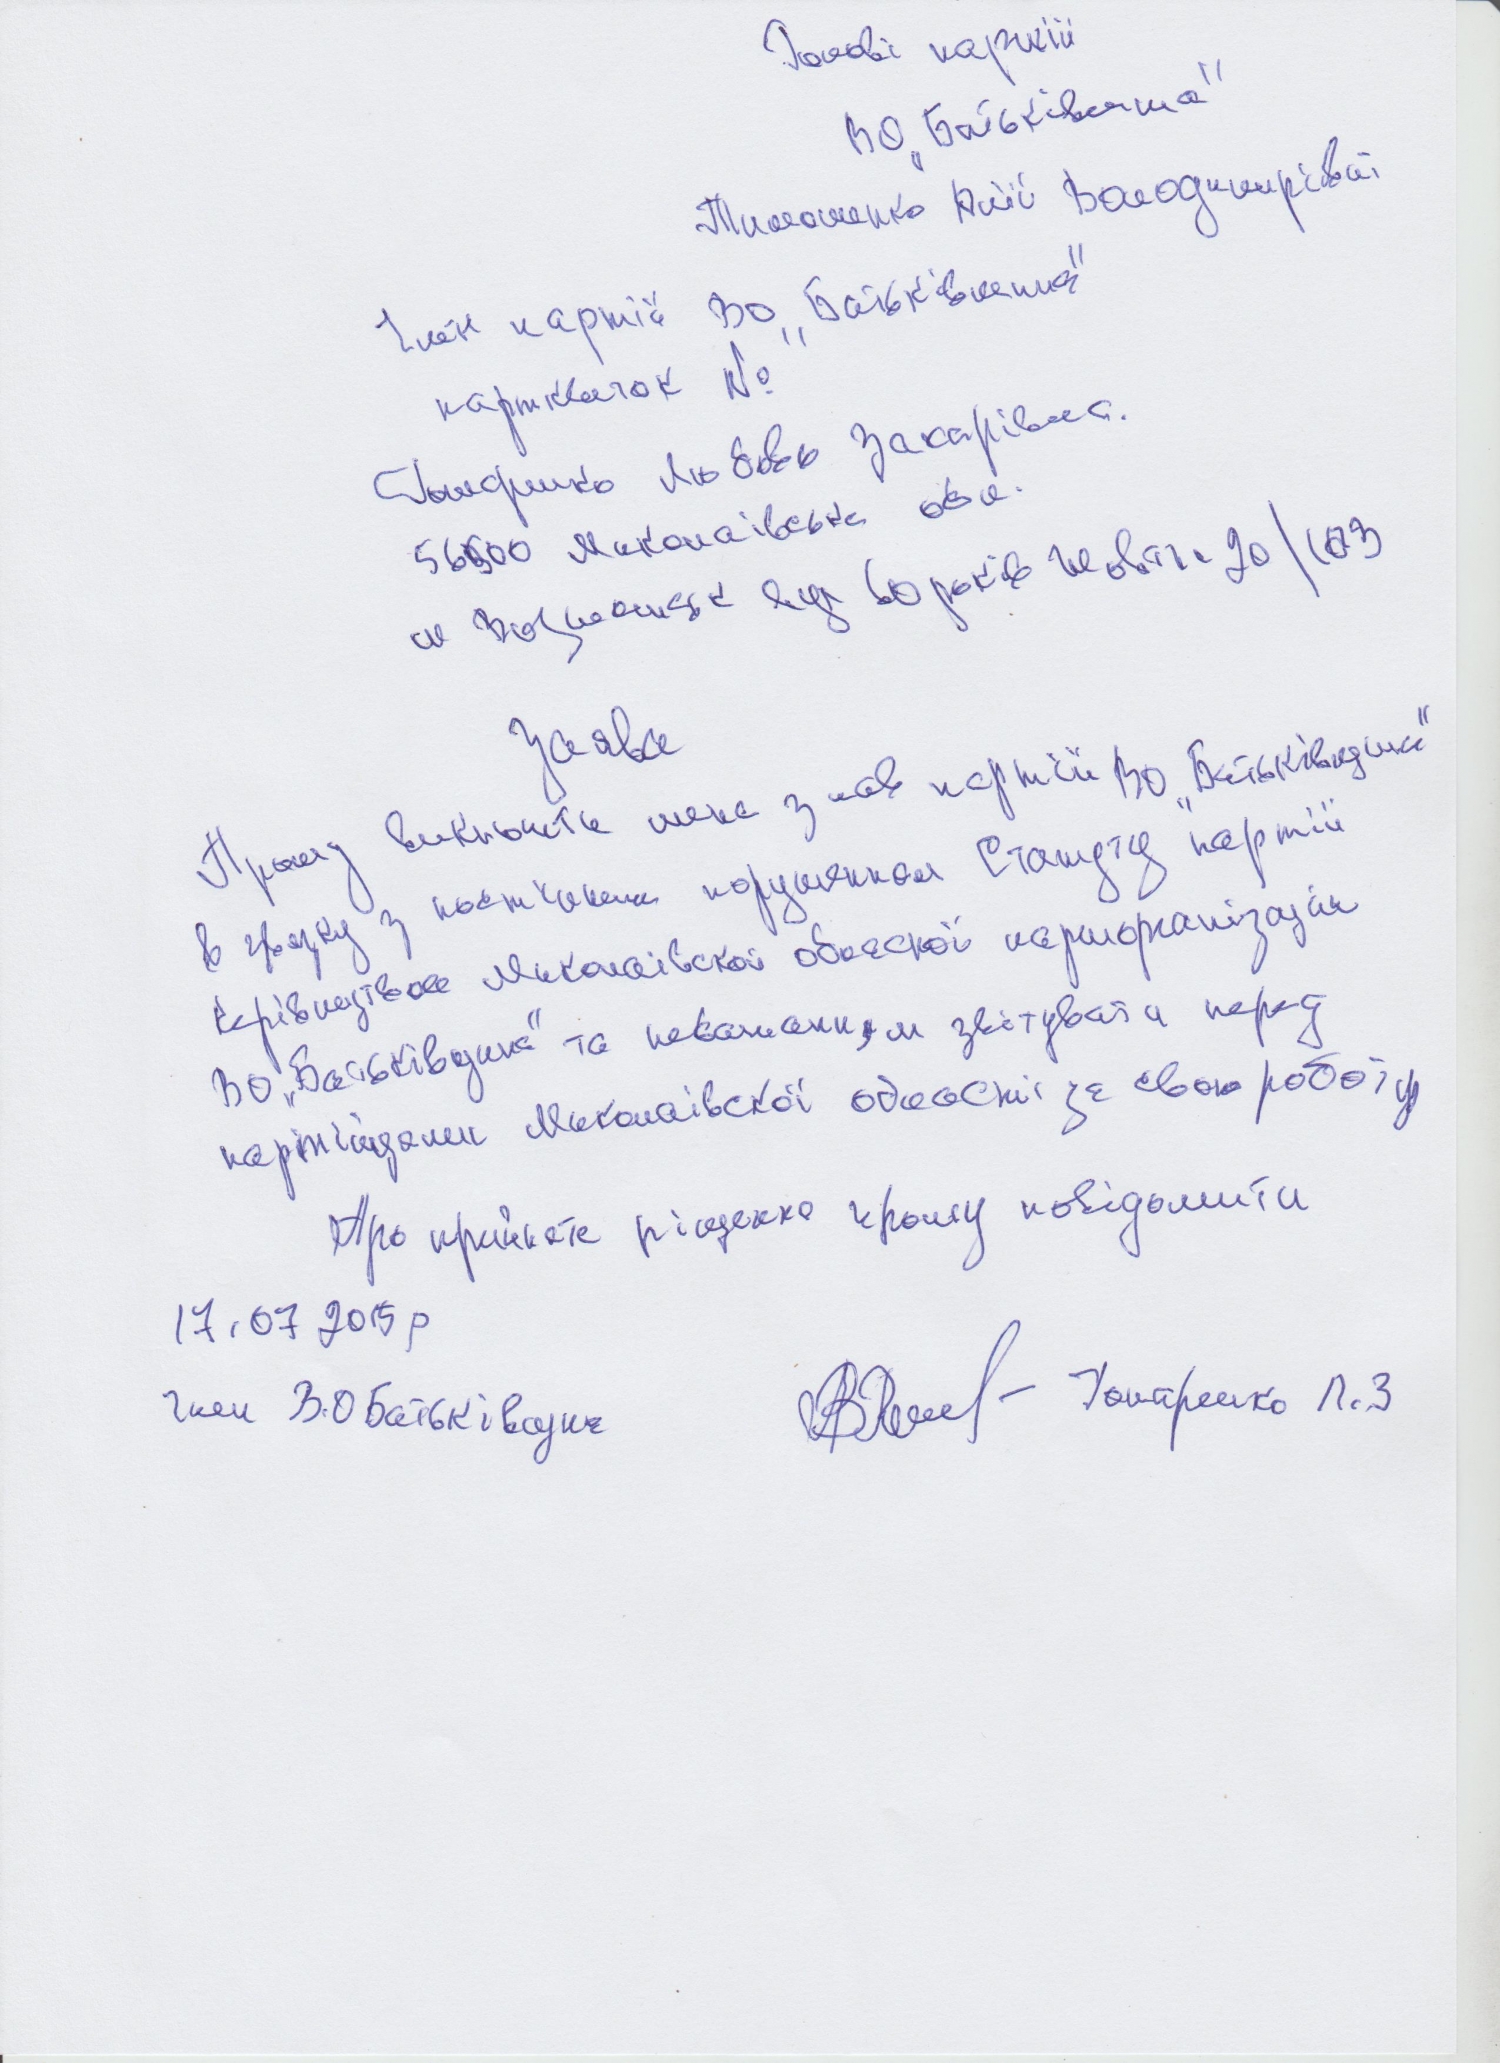 Голові партіїї
ВО „Батьківщина"
Тимошенко Юлії Володимирівні
Член партії ВО „Батьківщина"
партквиток №
Любовь Захарівна.
56500 Миколаївська обл.
м Вознесенськ вул 60 років Жовтня 20/103
Заява
Прошу виключити мене з лав партіїї ВО „Батьківщина"
в звязку з постійним порушенням Статуту партіїї
керівництвом Миколаївскої обласної парторганізаціїї
ВО „Батьківщина" та небажанням звітувати перед
партійцями Миколаївскої області за свою роботу
Про прийняте рішення прошу повідомити
17.07 2015р
Член В.О Батьківщина
Л.З